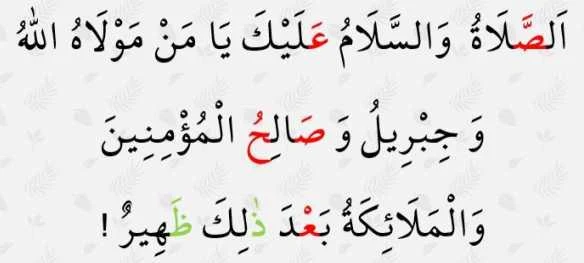 اَلصَّلَاةُ وَالسَّلَامُ عَلَيْكَ يَا مَنْ مَوْلَاهُ اللهُ
وَ جِبْرِيلُ وَ صَالِحُ الْمُؤْمِنِينَ
وَالْمَلَائِكَةُ بَعْدَ ذٰلِكَ ظَهِيرٌ !